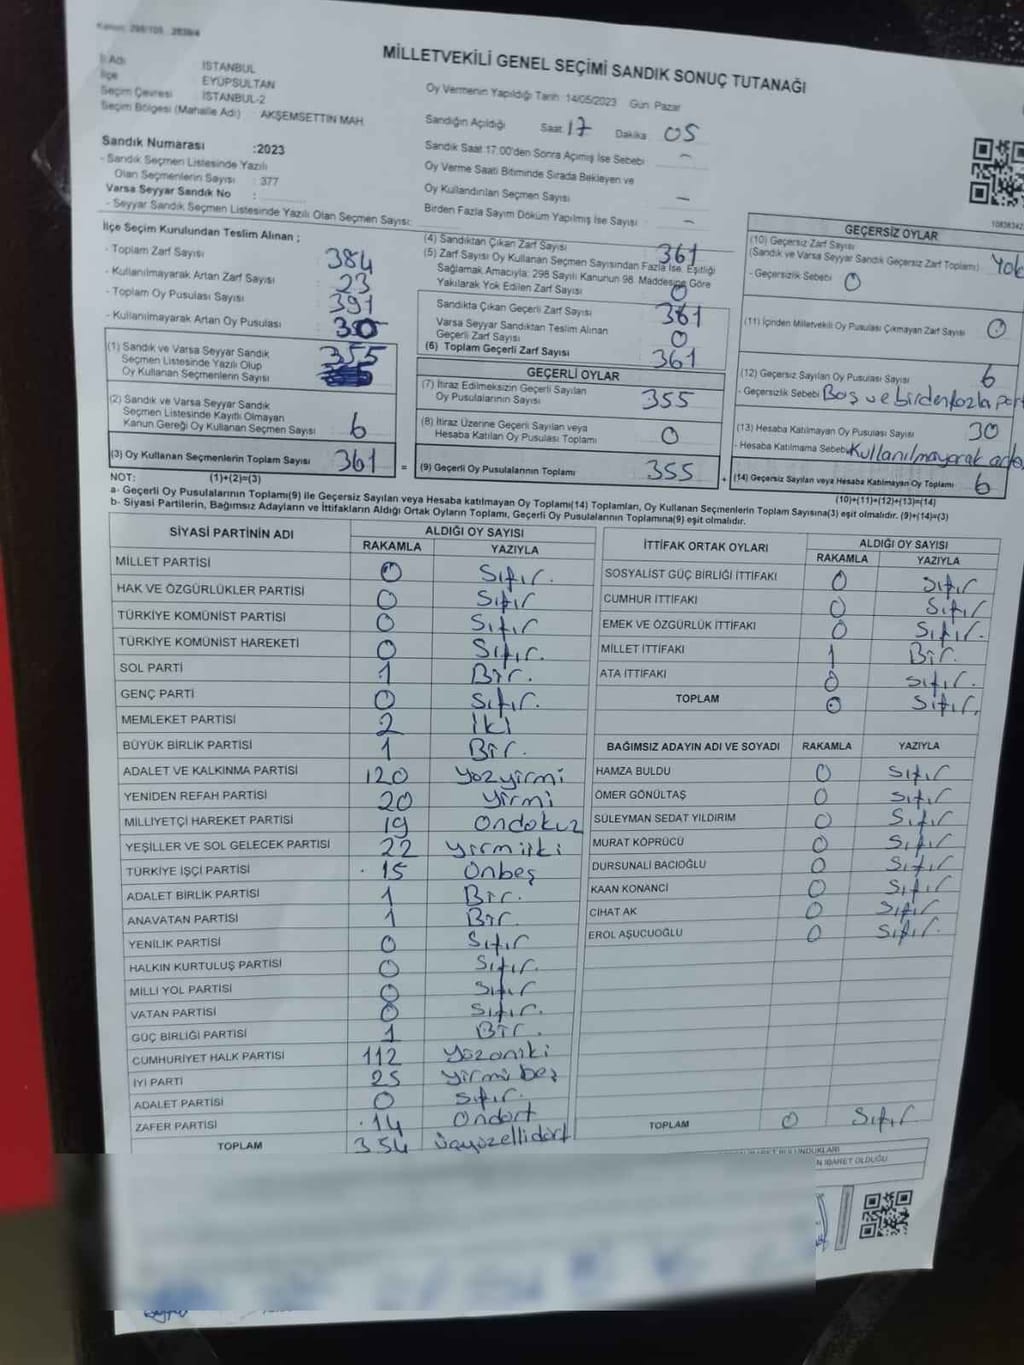 MİLLETVEKİLİ GENEL SEÇİMİ SANDIK SONUÇ TUTANAĞI
İl Adı İSTANBUL
İlçe EYÜPSULTAN
Seçim Çevresi İSTANBUL-2
Seçim Bölgesi (Mahalle Adı) : AKŞEMSETTİN MAH.
Oy Vermenin Yapıldığı Tarih: 14/05/2023 Gün: Pazar
Sandığın Açıldığı Saat 17 Dakika 05
Sandık Saat 17:00'den Sonra Açılmış İse Sebebi –
Oy Verme Saati Bitiminde Sırada Bekleyen ve
Oy Kullandırılan Seçmen Sayısı –
Birden Fazla Sayım Döküm Yapılmış İse Sayısı –
Sandık Numarası :2023
- Sandık Seçmen Listesinde Yazılı
Olan Seçmenlerin Sayısı : 377
Varsa Seyyar Sandık No :
- Seyyar Sandık Seçmen Listesinde Yazılı Olan Seçmen Sayısı:
İlçe Seçim Kurulundan Teslim Alınan ;
- Toplam Zarf Sayısı : 384
- Kullanılmayarak Artan Zarf Sayısı : 23
- Toplam Oy Pusulası Sayısı : 391
- Kullanılmayarak Artan Oy Pusulası : 30
(1) Sandık ve Varsa Seyyar Sandık
Seçmen Listesinde Yazılı Olup
Oy Kullanan Seçmenlerin Sayısı 355
(2) Sandık ve Varsa Seyyar Sandık
Seçmen Listesinde Kayıtlı Olmayan
Kanun Gereği Oy Kullanan Seçmen Sayısı 6
(3) Oy Kullanan Seçmenlerin Toplam Sayısı 361 =
(1)+(2)=(3)
(4) Sandıktan Çıkan Zarf Sayısı 361
(5) Zarf Sayısı Oy Kullanan Seçmen Sayısından Fazla İse, Eşitliği
Sağlamak Amacıyla; 298 Sayılı Kanunun 98. Maddesine Göre
Yakılarak Yok Edilen Zarf Sayısı 0
Sandıkta Çıkan Geçerli Zarf Sayısı 361
Varsa Seyyar Sandıktan Teslim Alınan
Geçerli Zarf Sayısı 0
(6) Toplam Geçerli Zarf Sayısı 361
GEÇERLİ OYLAR
(7) İtiraz Edilmeksizin Geçerli Sayılan
Oy Pusulalarının Sayısı 355
(8) İtiraz Üzerine Geçerli Sayılan veya
Hesaba Katılan Oy Pusulası Toplamı 0
(9) Geçerli Oy Pusulalarının Toplamı 355 +
GEÇERSİZ OYLAR
(10) Geçersiz Zarf Sayısı
(Sandık ve Varsa Seyyar Sandık Geçersiz Zarf Toplamı) Yok
- Geçersizlik Sebebi 0
(11) İçinden Milletvekili Oy Pusulası Çıkmayan Zarf Sayısı 0
(12) Geçersiz Sayılan Oy Pusulası Sayısı 6
- Geçersizlik Sebebi Boş ve birden fazla
(13) Hesaba Katılmayan Oy Pusulası Sayısı 30
- Hesaba Katılmama Sebebi Kullanılmayarak
(14) Geçersiz Sayılan veya Hesaba Katılmayan Oy Toplamı 6
(10)+(11)+(12)+(13)=(14)
NOT:
a- Geçerli Oy Pusulalarının Toplamı(9) ile Geçersiz Sayılan veya Hesaba katılmayan Oy Toplamı(14) Toplamları, Oy Kullanan Seçmenlerin Toplam Sayısına(3) eşit olmalıdır. (9)+(14)=(3)
b- Siyasi Partilerin, Bağımsız Adayların ve İttifakların Aldığı Ortak Oyların Toplamı, Geçerli Oy Pusulalarının Toplamına(9) eşit olmalıdır.
SİYASİ PARTİNİN ADI ALDIĞI OY SAYISI
RAKAMLA YAZIYLA
MİLLET PARTİSİ 0 Sıfır.
HAK VE ÖZGÜRLÜKLER PARTİSİ 0 Sıfır
TÜRKİYE KOMÜNİST PARTİSİ 0 Sıfır
TÜRKİYE KOMÜNİST HAREKETİ 0 Sıfır.
SOL PARTİ 1 Bir.
GENÇ PARTİ 0 Sıfır.
MEMLEKET PARTİSİ 2 İki
BÜYÜK BİRLİK PARTİSİ 1 Bir.
ADALET VE KALKINMA PARTİSİ 120 Yüzyirmi
YENİDEN REFAH PARTİSİ 20 Yirmi
MİLLİYETÇİ HAREKET PARTİSİ 19 Ondokuz
YEŞİLLER VE SOL GELECEK PARTİSİ 22 Yirmiiki
TÜRKİYE İŞÇİ PARTİSİ 15 Onbeş
ADALET BİRLİK PARTİSİ 1 Bir.
ANAVATAN PARTİSİ 1 Bir.
YENİLİK PARTİSİ 0 Sıfır
HALKIN KURTULUŞ PARTİSİ 0 Sıfır.
MİLLİ YOL PARTİSİ 0 Sıfır
VATAN PARTİSİ 0 Sıfır.
GÜÇ BİRLİĞİ PARTİSİ 1 Bir.
CUMHURİYET HALK PARTİSİ 112 Yüzoniki
İYİ PARTİ 25 Yirmi beş
ADALET PARTİSİ 0 Sıfır.
ZAFER PARTİSİ 14 Ondört
TOPLAM 354 üçyüzellidört
İTTİFAK ORTAK OYLARI ALDIĞI OY SAYISI
RAKAMLA YAZIYLA
SOSYALİST GÜÇ BİRLİĞİ İTTİFAKI 0 Sıfır
CUMHUR İTTİFAKI 0 Sıfır
EMEK VE ÖZGÜRLÜK İTTİFAKI 0 Sıfır.
MİLLET İTTİFAKI 1 Bir.
ATA İTTİFAKI 0 Sıfır.
TOPLAM 0 Sıfır.
BAĞIMSIZ ADAYIN ADI VE SOYADI RAKAMLA YAZIYLA
HAMZA BULDU 0 Sıfır
ÖMER GÖNÜLTAŞ 0 Sıfır
SÜLEYMAN SEDAT YILDIRIM 0 Sıfır
MURAT KÖPRÜCÜ 0 Sıfır
DURSUNALİ BACIOĞLU 0 Sıfır
KAAN KONANCI 0 Sıfır
CİHAT AK 0 Sıfır
EROL AŞUCUOĞLU 0 Sıfır.
TOPLAM 0 Sıfır